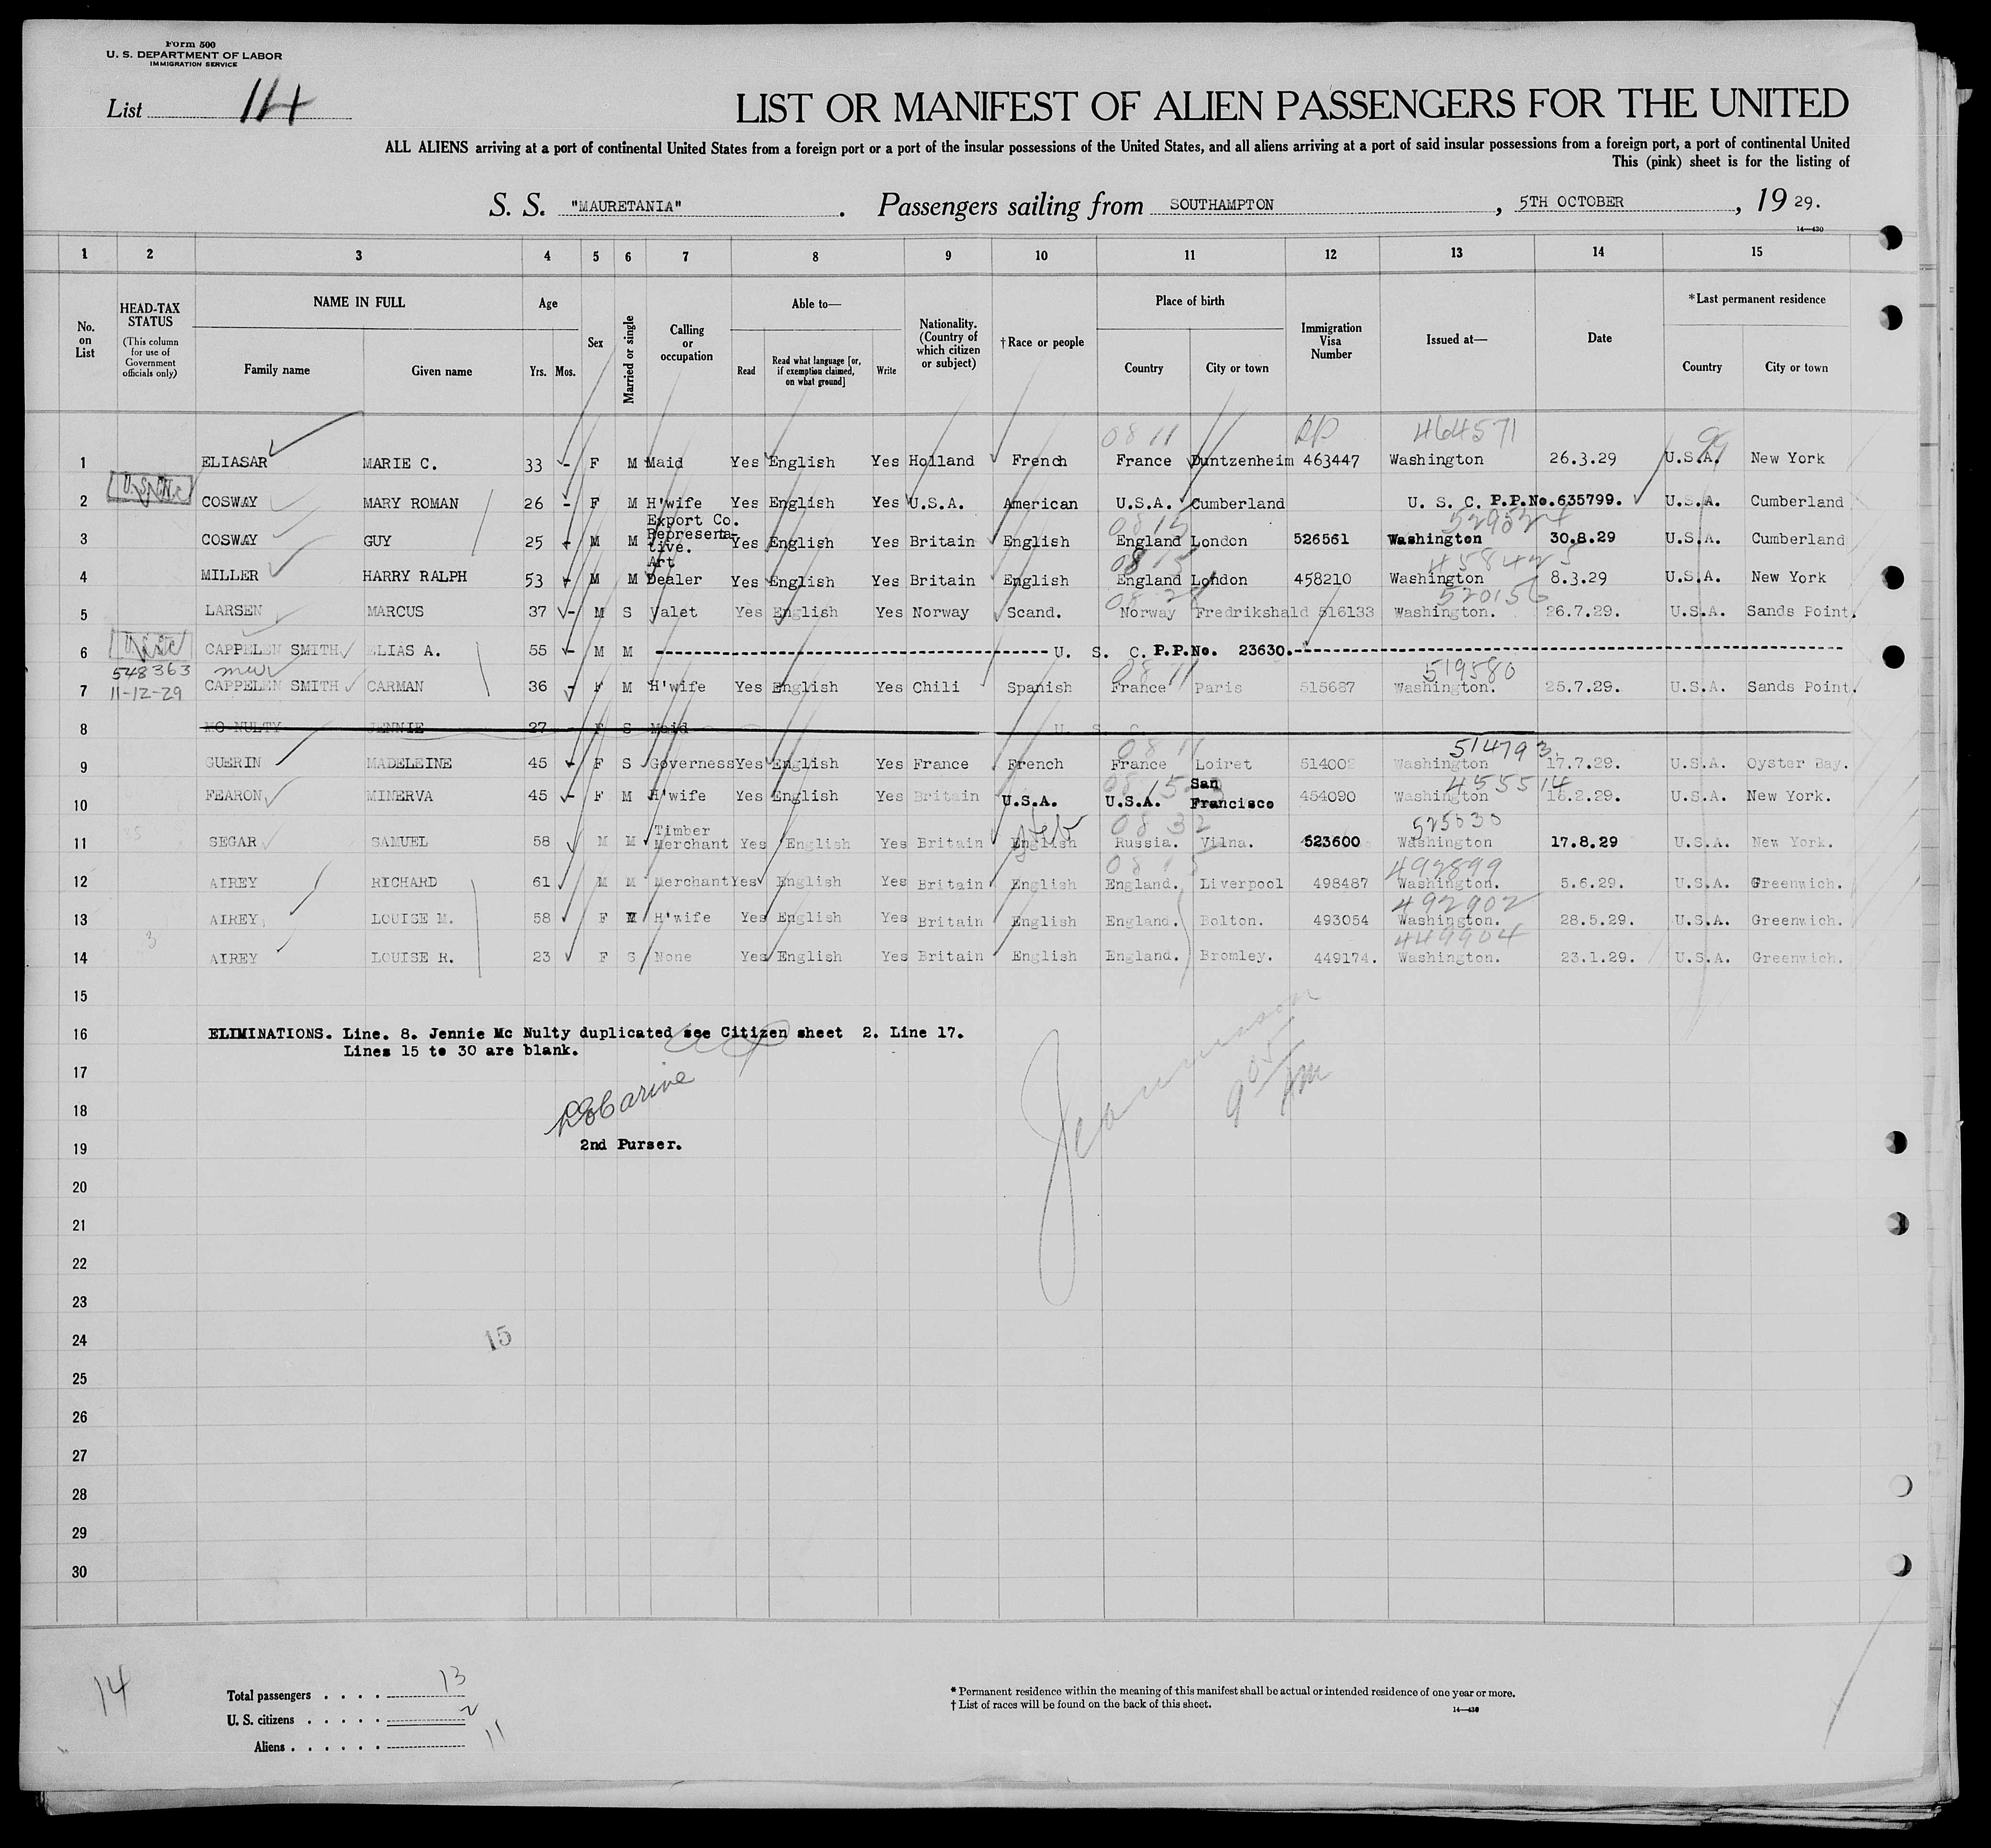 Form 500
U. S. DEPARTMENT OF LABOR
IMMIGRATION SERVICE
List 114
LIST OR MANIFEST OF ALIEN PASSENGERS FOR THE UNITED
ALL ALIENS arriving at a port of continental United States from a foreign port or a port of the insular possessions of the United States, and all aliens arriving at a port of said insular possessions from a foreign port, a port of continental United
This (pink) sheet is for the listing of
S. S. "MAURETANIA". Passengers sailing from SOUTHAMPTON, 5TH OCTOBER, 19 29.
14—430
1 2 3 4 5 6 7 8 9 10 11 12 13 14 15
No. on List
HEAD-TAX STATUS
(This column for use of Government officials only)
NAME IN FULL
Family name Given name
Age
Yrs. Mos.
Sex
Married or single
Calling or occupation
Able to—
Read Read what language [or, if exemption claimed, on what ground] Write
Nationality. (Country of which citizen or subject)
†Race or people
Place of birth
Country City or town
Immigration Visa Number
Issued at—
Date
*Last permanent residence
Country City or town
08 11 464571
1 ELIASAR MARIE C. 33 - F M Maid Yes English Yes Holland French France Duntzenheim 463447 Washington 26.3.29 U.S.A. New York
2 COSWAY MARY ROMAN 26 - F M H'wife Yes English Yes U.S.A. American U.S.A. Cumberland U. S. C. P.P.No.635799. U.S.A. Cumberland
3 COSWAY GUY 25 - M M Export Co. Representa-tive. Yes English Yes Britain English England London 526561 Washington 30.8.29 U.S.A. Cumberland
4 MILLER HARRY RALPH 53 - M M Art Dealer Yes English Yes Britain English England London 458210 Washington 8.3.29 U.S.A. New York
520156
5 LARSEN MARCUS 37 - M S Valet Yes English Yes Norway Scand. Norway Fredrikshald 516133 Washington. 26.7.29. U.S.A. Sands Point.
6 CAPPELEN SMITH ELIAS A. 55 - M M U. S. C. P.P.No. 23630.
548363 08 11 519580
7 11-12-29 CAPPELEN SMITH CARMAN 36 - F M H'wife Yes English Yes Chili Spanish France Paris 515687 Washington. 25.7.29. U.S.A. Sands Point.
8 MC NULTY JENNIE 27 - F S Maid U. S. C.
08 11 514793
9 GUERIN MADELEINE 45 - F S Governess Yes English Yes France French France Loiret 514002 Washington 17.7.29. U.S.A. Oyster Bay.
455514
10 FEARON MINERVA 45 - F M H'wife Yes English Yes Britain U.S.A. U.S.A. San Francisco 454090 Washington 18.2.29. U.S.A. New York.
08 32 525030
11 SEGAR SAMUEL 58 M M Timber Merchant Yes English Yes Britain English Russia. Vilna. 523600 Washington 17.8.29 U.S.A. New York.
492899
12 AIREY RICHARD 61 M M Merchant Yes English Yes Britain English England. Liverpool 498487 Washington. 5.6.29. U.S.A. Greenwich.
492902
13 AIREY LOUISE M. 58 F M H'wife Yes English Yes Britain English England. Bolton. 493054 Washington. 28.5.29. U.S.A. Greenwich.
449904
14 AIREY LOUISE R. 23 F S None Yes English Yes Britain English England. Bromley. 449174. Washington. 23.1.29. U.S.A. Greenwich.
15
16 ELIMINATIONS. Line. 8. Jennie Mc Nulty duplicated see Citizen sheet 2. Line 17.
Lines 15 to 30 are blank.
17
18
19 2nd Purser.
20
21
22
23
24 15
25
26
27
28
29
30
14
Total passengers . . . . 13
U. S. citizens . . . . . 2
Aliens . . . . . . 11
* Permanent residence within the meaning of this manifest shall be actual or intended residence of one year or more.
† List of races will be found on the back of this sheet.
14—430